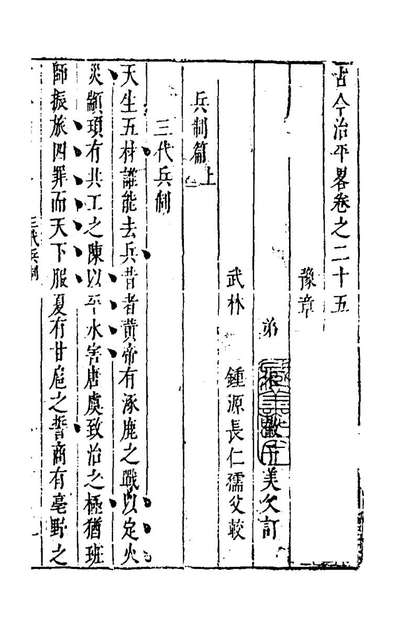 古今治平畧卷之二十五
豫章
弟
美父訂
武林 鍾源長仁孺父較
兵制篇上
三代兵制
天生五材誰能去兵昔者黃帝有涿鹿之戰以定火
災顓頊有共工之陳以平水害唐虞致治之極猶班
師振旅四罪而天下服夏有甘扈之誓商有亳野之
三代兵制